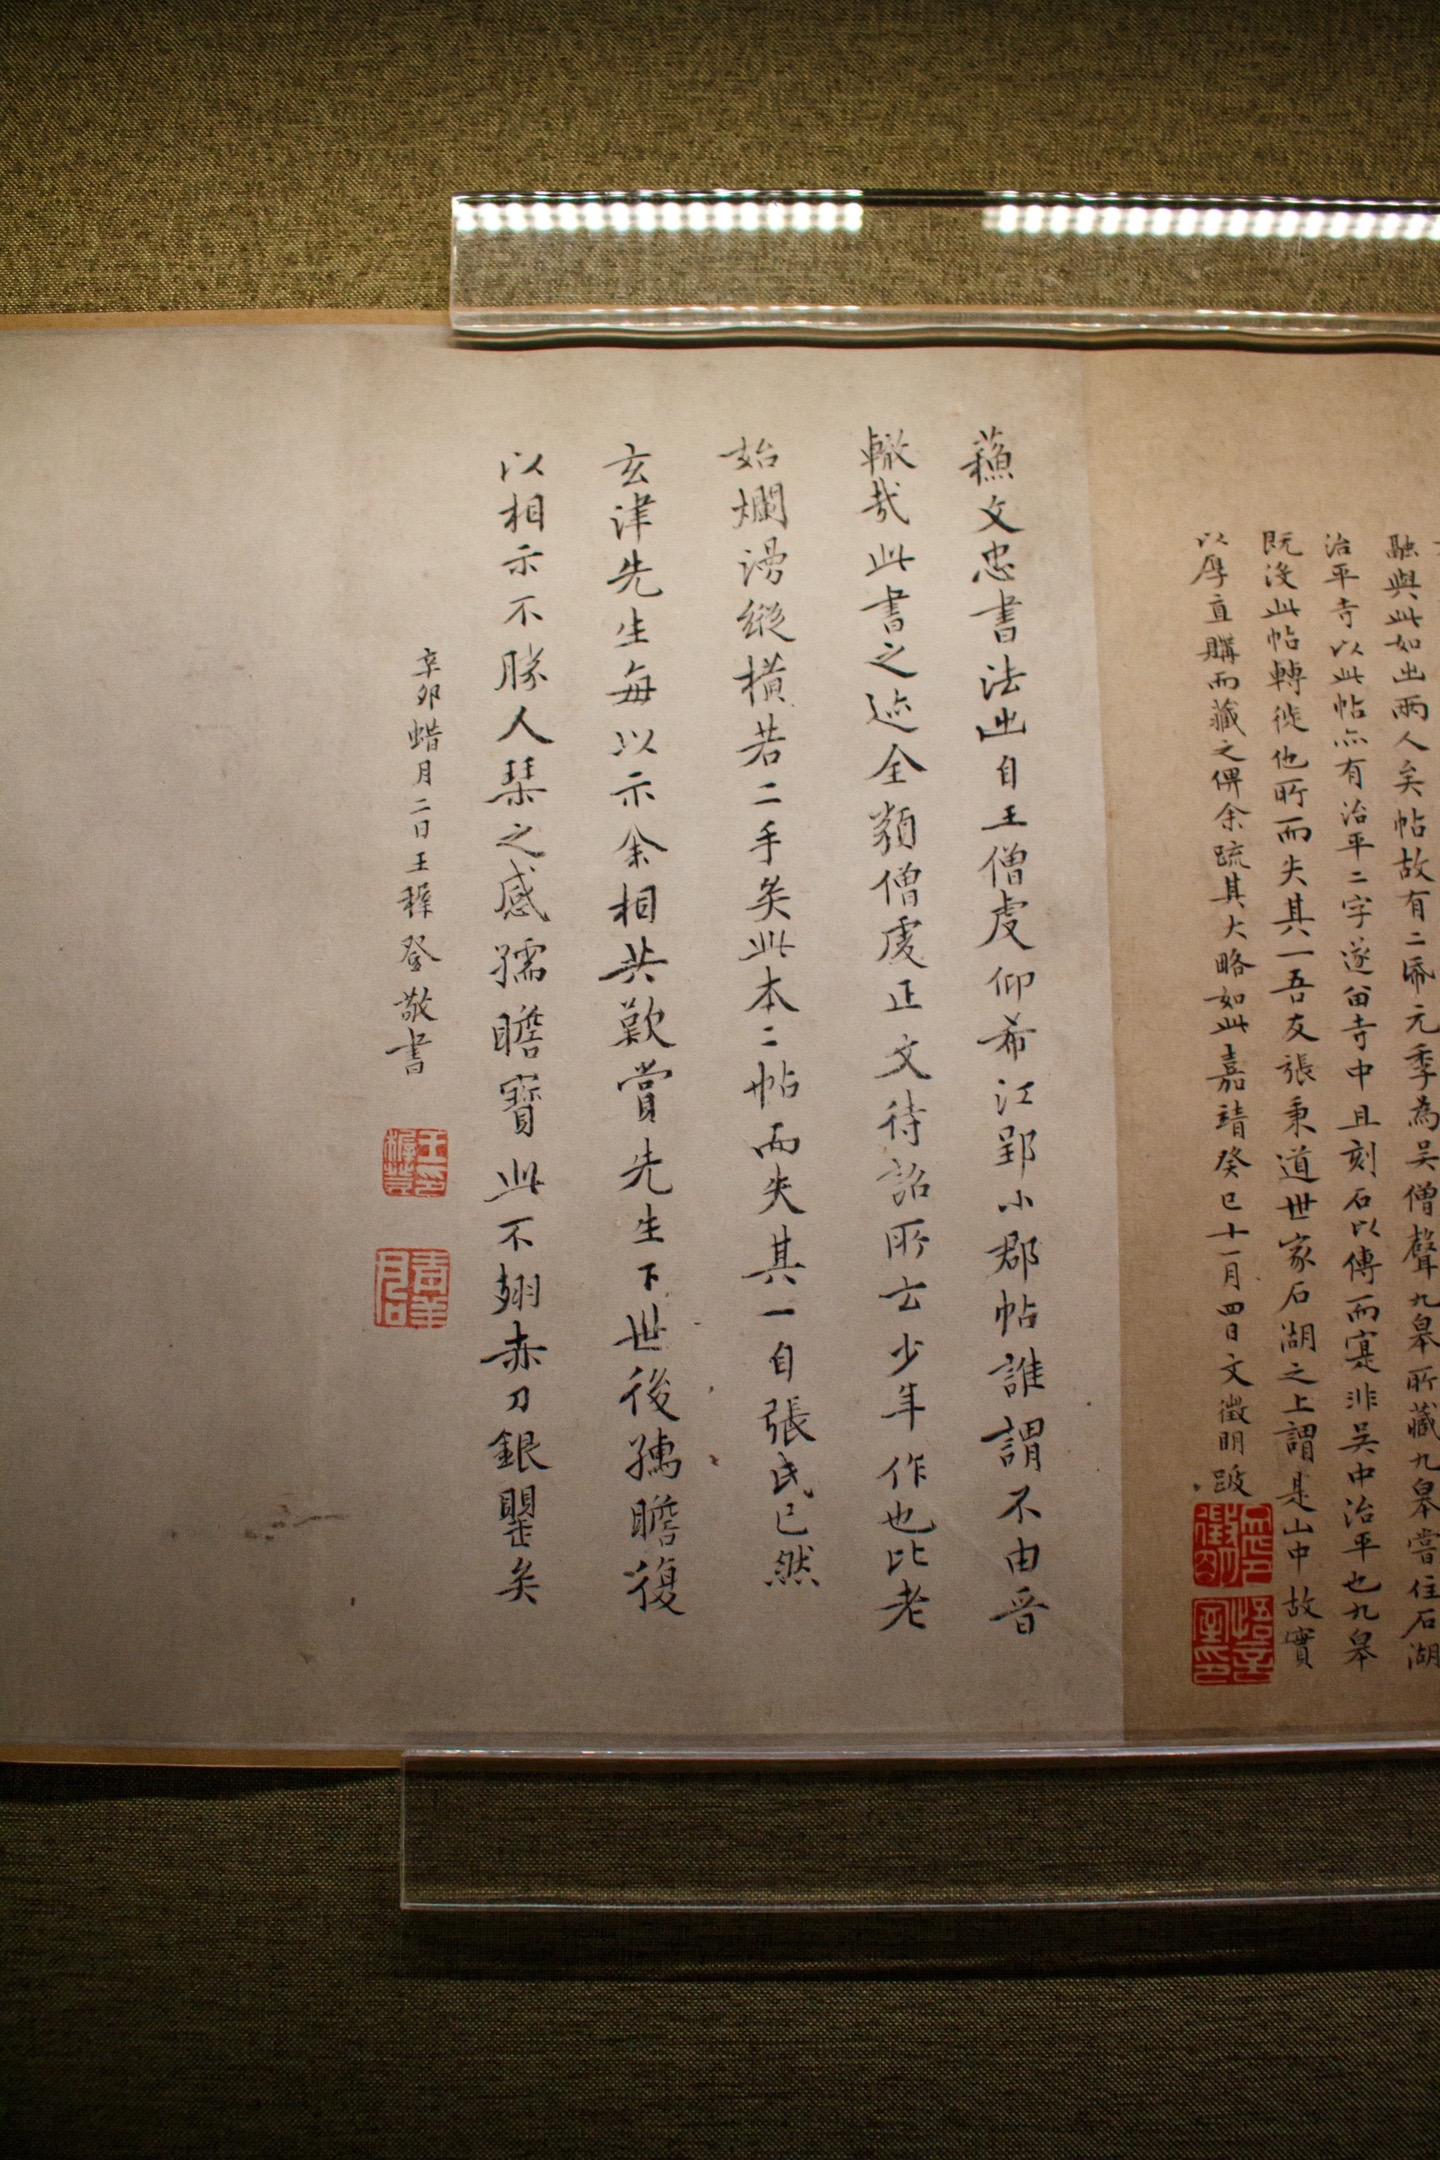 融與此如出兩人矣帖故有二爲元季為吴僧聲九皋所藏九皋嘗住石湖
治平寺以此帖亦有治平二字遂留寺中且刻石以傳而寔非吴中治平也九皋
既没此帖轉徙他所而失其一吾友張秉道世家石湖之上謂是山中故實
以厚直購而藏之俾余疏其大略如此嘉靖癸巳十一月四日文徵明跋
蘓文忠書法出自王僧虔仰希江郢小郡帖誰謂不由晉
轍哉此書之迹全類僧虔正文待詔所云少年作也比老
始爛漫縱橫若二手矣此本二帖而失其一自張氏已然
玄津先生每以示余相共歎賞先生下世後孺瞻復
以相示不勝人琹之感孺瞻寳此不翅赤刀銀甖矣
辛卯蜡月二日王穉登敬書